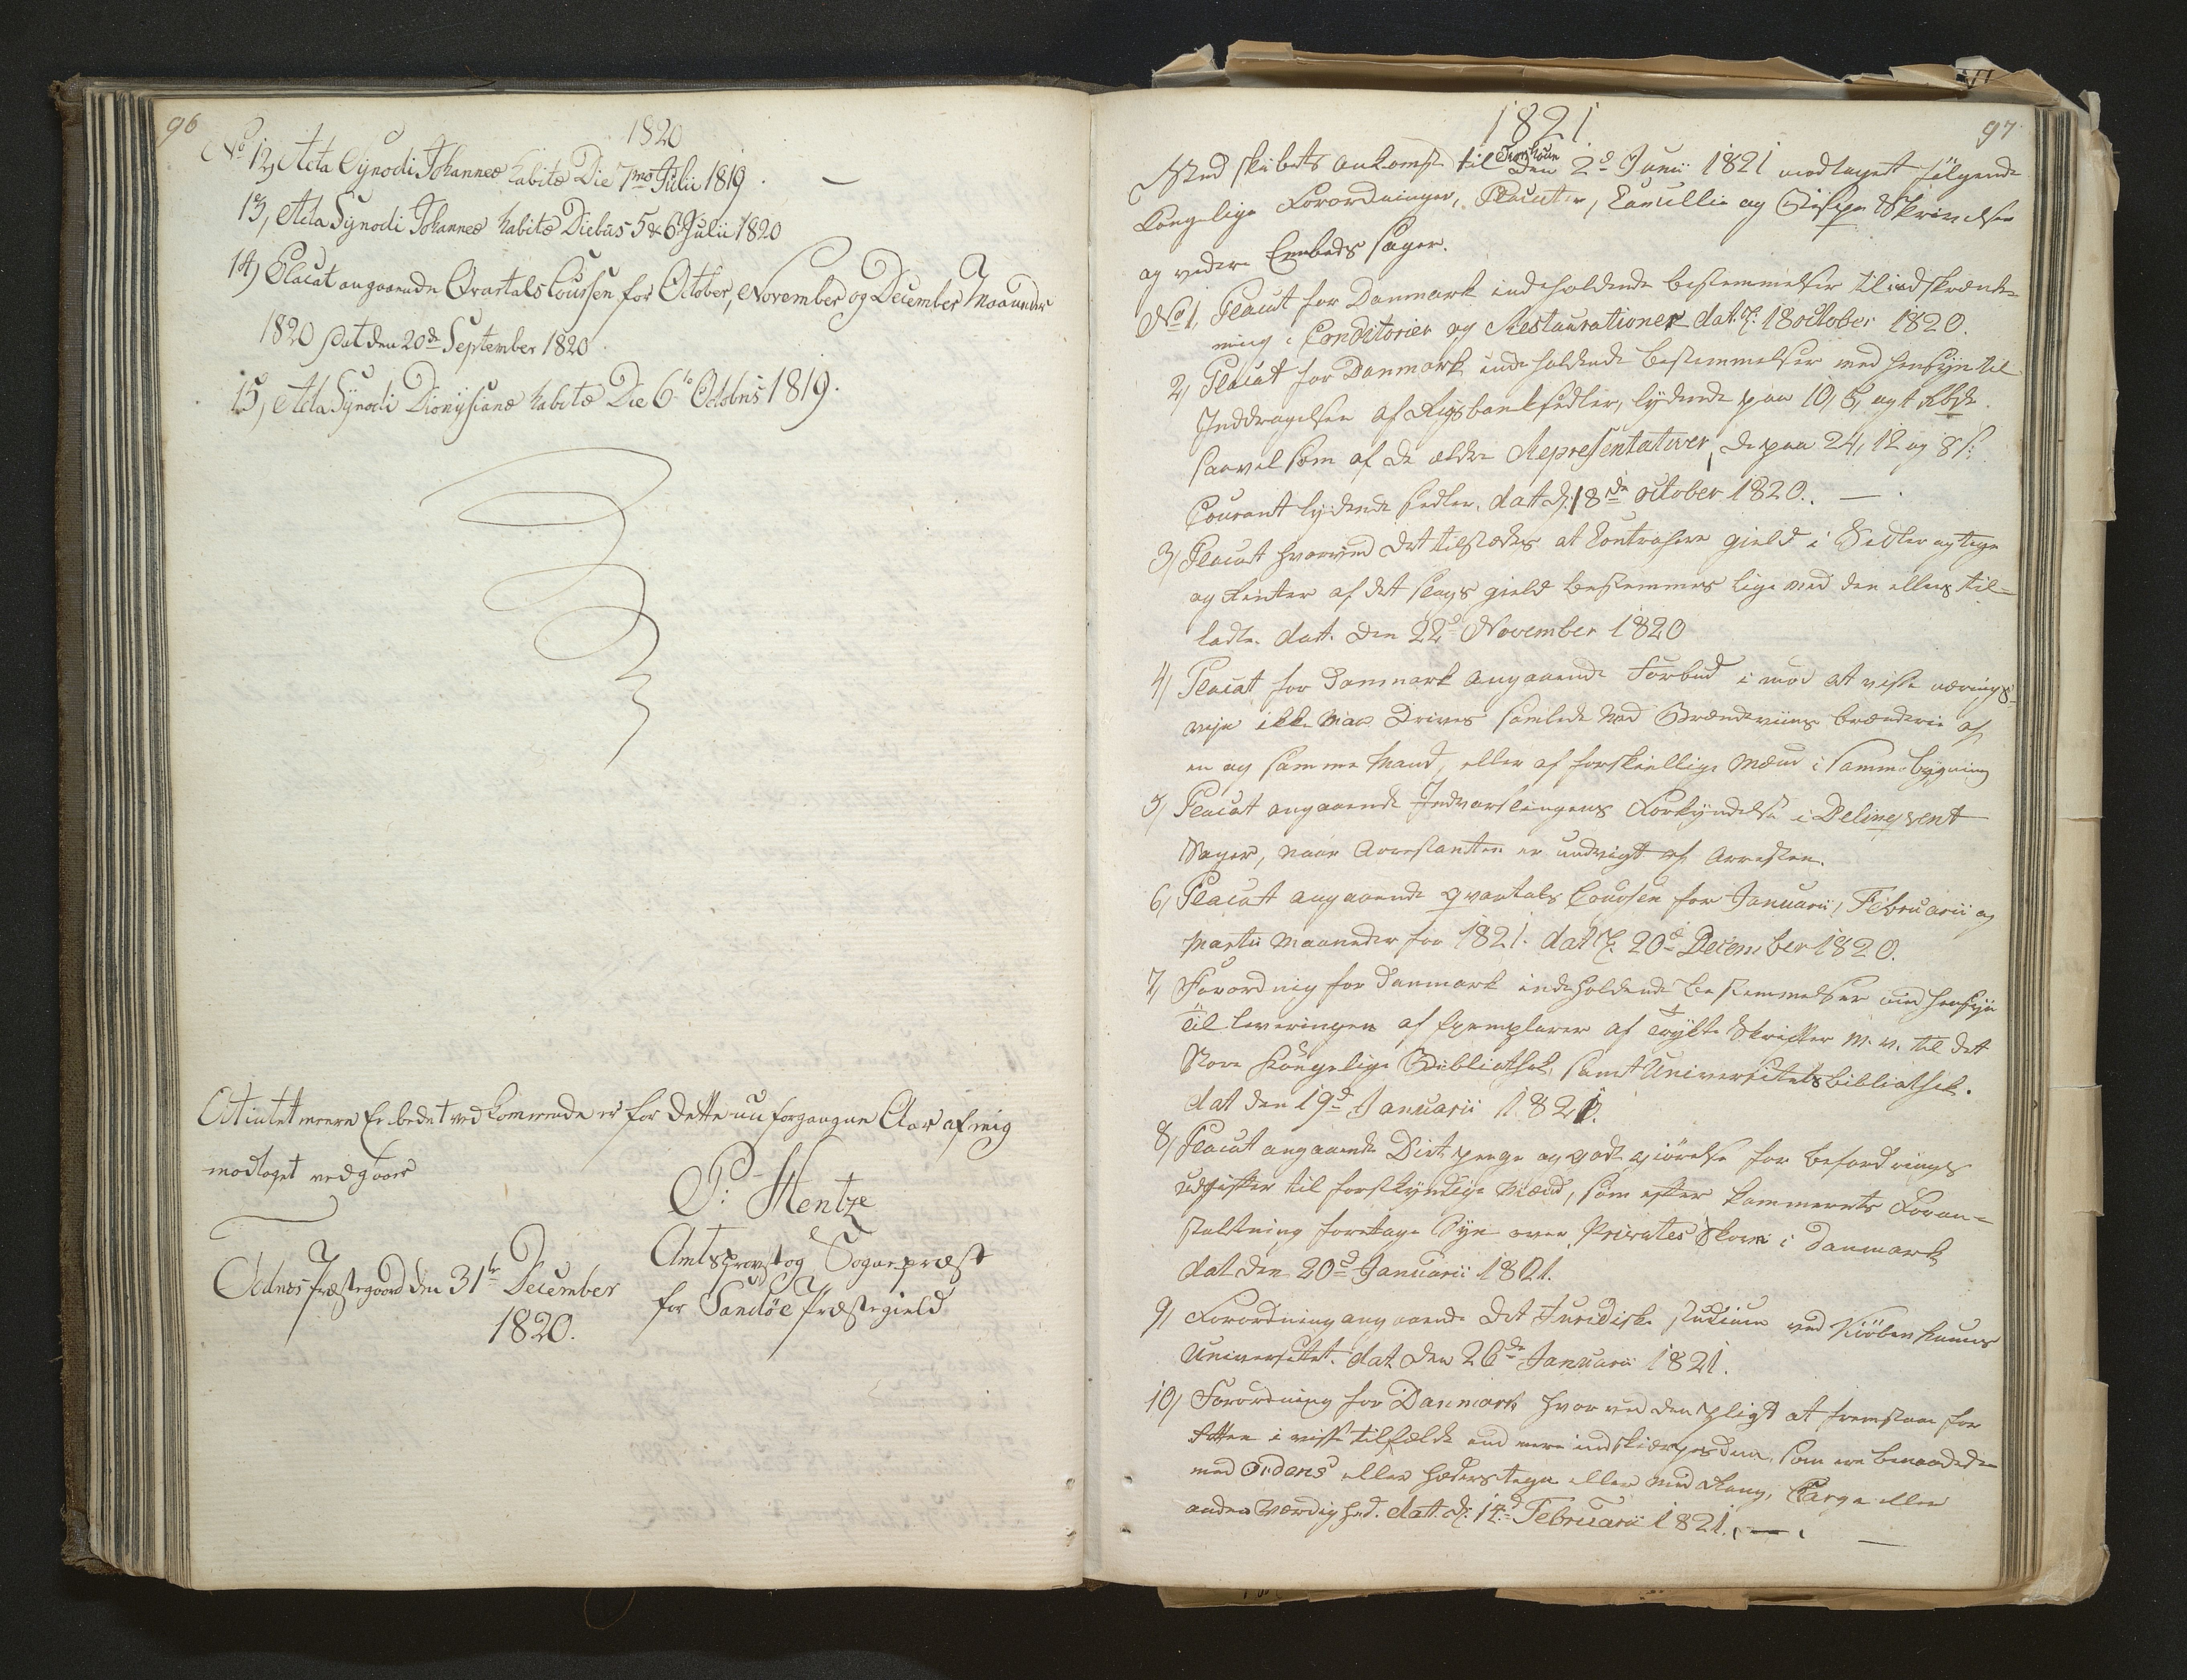 96
1820
No 12, Acta Synodi Johanneæ habitæ Die 7mo Julii 1819. —
13, Acta Synodi Johanneæ habitæ Diebus 5 & 6 Julii 1820
14, Placat angaaende Qvartals Coursen for October, November og December Maaneder
1820 dat den 20de September 1820.
15, Acta Synodi Dionysianæ habitæ Die 6to Octobris 1819.
At intet meere Embedet vedkommende er for dette nu forgangne Aar af mig
modtaget vedgaaes
P: Hentze
Amtsprovst og Sognepræst
for Sandöe Præstegield
Præstegaard den 31te December
1820.
1821
97
Med skibets ankomst til Thorshavn den 2d Junii 1821 modtaget fölgende
Kongelige Forordninger, Placater, Cancellie og Bispe Skrivelser
og videre Embeds sager.
No 1, Placat for Danmark indeholdende bestemmelser til indskrænk=
ning i Conditorier og Restaurationer dat. d: 18 october 1820.
2, Placat for Danmark indeholdende bestemmelser med hensyn til
Inddragelsen af Rigsbanksedler, lydende paa 10, 5, og 1 Rbd.
saavelsom af de ældre Repræsentativer, de paa 24, 12 og 8 s:
Courant lydende sedler. dat d. 18de october 1820. —
3, Placat hvorved det tilstædes at Contrahere gield i Sedler og tegn
og Renter af det slags gield bestemmes lige med den ellers til=
ladte. dat. den 22d November 1820
4, Placat for Danmark angaaende Forbud i mod at visse nærings=
veje ikke maa Drives samlede med Brændeviins brænderie af
en og samme Mand, eller af forskiellige Mænd i samme bygning
5, Placat angaaende Indvarslingens Forkyndelse i Delinqvent
Sager, naar Arrestanten er undvigt af Arresten.
6, Placat angaaende qvartals Coursen for Januarii, Februarii og
Martii Maaneder for 1821. dat d. 20d December 1820.
7, Forordnig for Danmark indeholdende bestemmelser med hensyn
til leveringen af Exemplarer af trykte Skrifter m. v. til det
Store Kongelige Bibliothek, samt Universitets bibliothek.
dat den 19d Januarii 1821.
8, Placat angaaende Diet penge og godtgiörelse for befordrings
udgifter til forstkyndige Mænd, som efter kammerets Foran=
staltning foretage Syn over Privates Skove i Danmark
dat den 20d Januarii 1821.
9, Forordning angaaende det Juridiske studium ved Kiöbenhavns
Universitet. dat den 26de Januarii 1821.
10, Forordning for Danmark hvorved den pligt at fremstaae for
Retten i visse tilfælde end mere indskiærpes dem, som ere benaadede
med Ordens eller hæderstegn eller med Rang, Charge eller
anden værdighed. dat. d: 14d Februarii 1821. —